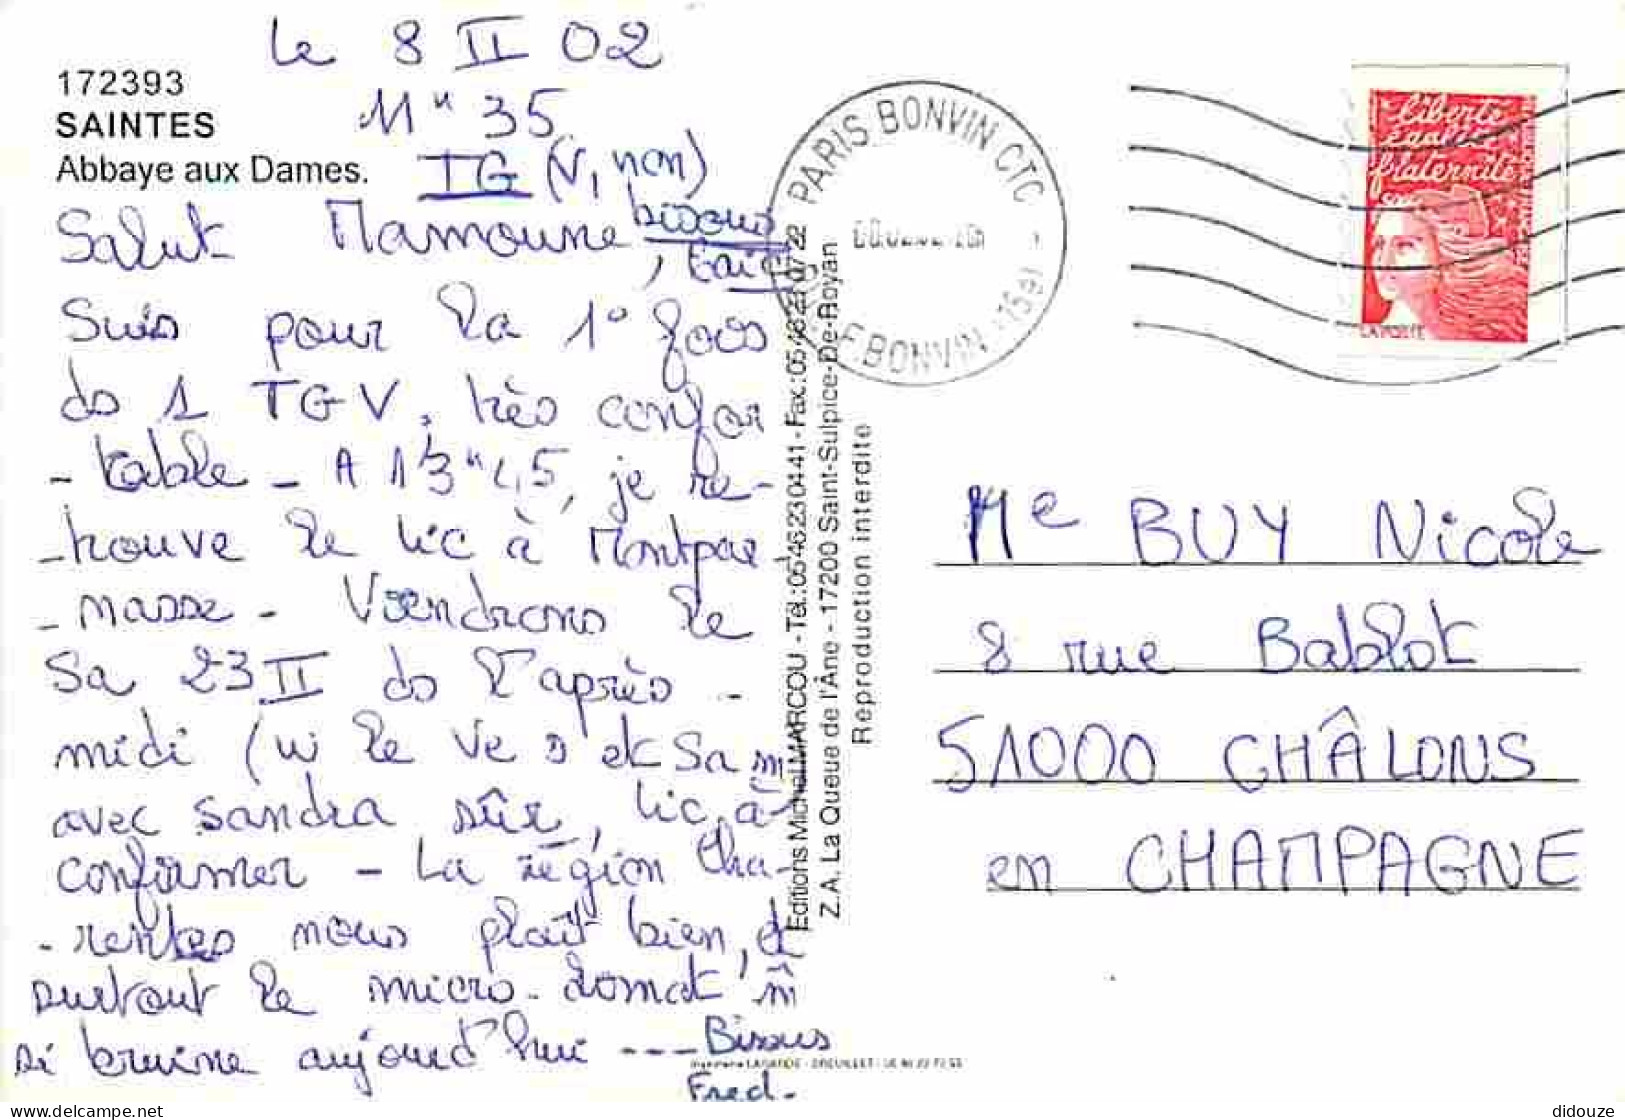 le 8 II 02
172393
SAINTES
Abbaye aux Dames.
11 H 35
TG (V, non)
Salut Mamoune,
bisous
Suis pour la 1° fois
ds 1 TGV, très confor
-table - A 13 H 45, je re-
-trouve le tic à Montpar
-nasse - Viendrons le
Sa 23 II ds l'après -
midi (ui le Ve s et Sa m
avec Sandra sûr, tic à
confirmer - La région Cha-
-rentes nous plaît bien, et
surtout le micro-climat m̂
si bruine aujourd'hui ---
Bisous
Fred-
Editions Michel MARCOU - Tél.: 05 46 23 04 41 - Fax: 05 46 22 07 22
Z.A. La Queue de l'Âne - 17200 Saint-Sulpice-De-Royan
Reproduction interdite
PARIS BONVIN CTC
F.BONVIN
Liberté
égalité
fraternité
LA POSTE
Me BUY Nicole
8 rue Bablot
51000 CHÂLONS
en CHAMPAGNE
didouze